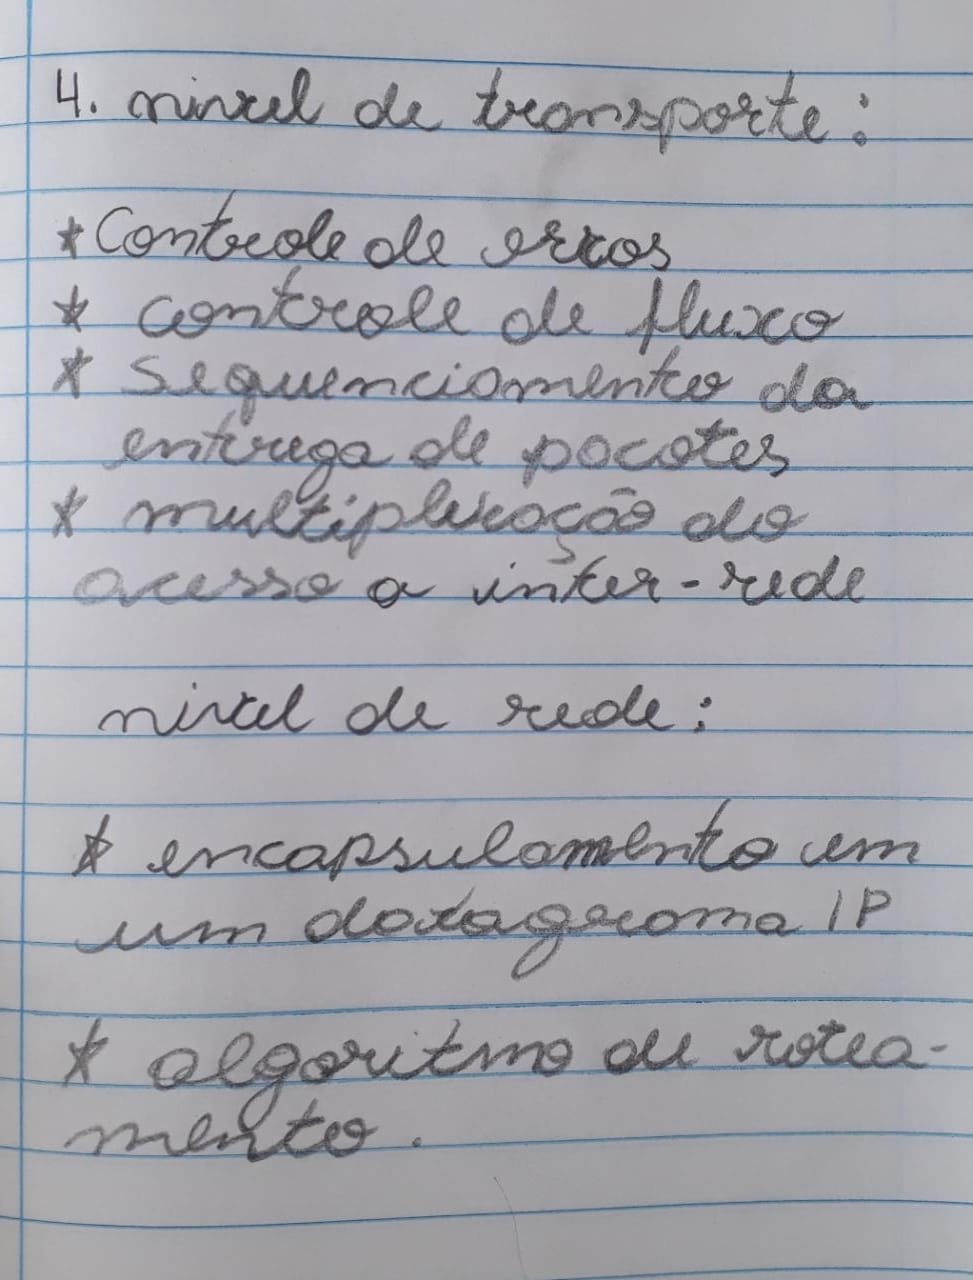 4. nivel de transporte:
* Controle de erros
* controle de fluxo
* Sequenciamento da
entrega de pacotes
* multiplexação do
acesso a inter-rede
nivel de rede:
* encapsulamento em
um datagrama IP
* algoritmo de rotea-
mento.